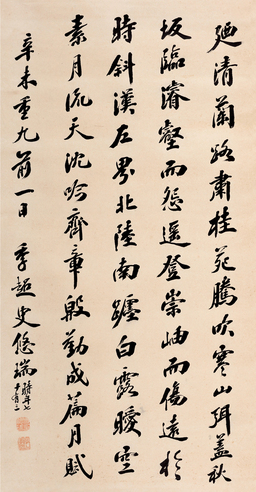 廼清蘭路肅桂苑騰吹寒山弭蓋秋
坂臨濬壑而怨遥登崇岫而傷遠於
時斜漢左界北陸南躔白露曖空
素月流天沈吟齊章殷勤成篇月賦
辛未重九前一日 季超史悠瑞